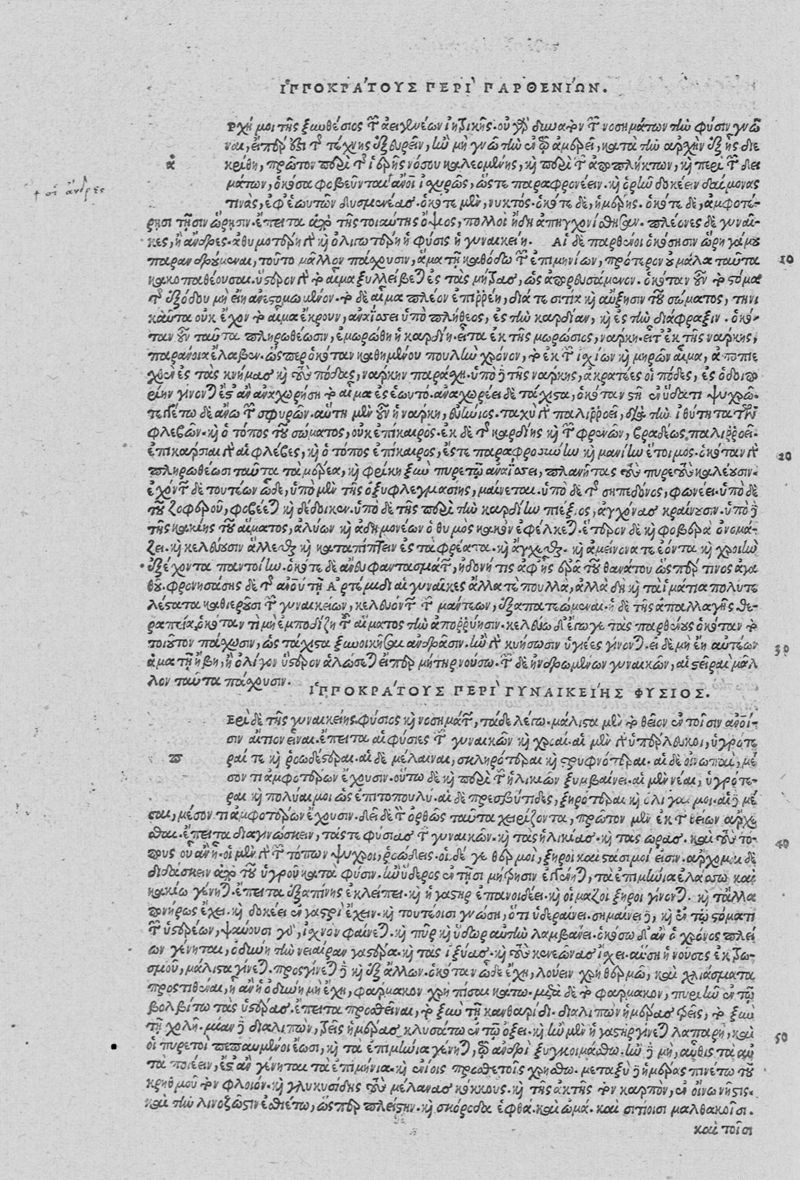 ἹΠΠΟΚΡΆΤΟΥΣ ΠΕΡῚ ΠΑΡΘΕΝΊΩΝ.
ρχή μοι τῆς ξυνθέσιος τῶν ἀειγενέων ἰητρικῆς. οὐ γὰρ δυνατὸν τῶν νοσημάτων τὴν φύσιν γνῶ
ναι, ὅπερ ἐστὶ τῆς τέχνης ἐξευρεῖν, ἢν μὴ γνῷ τὴν ἐν τῷ ἀμερεῖ, κατὰ τὴν ἀρχὴν ἐξ ἧς διε
α κρίθη, πρῶτον περὶ τῆς ἱερῆς νόσου καλεομένης, καὶ περὶ τῶν ἀποπλήκτων, καὶ περὶ τῶν δει
μάτων, ὁκόσα φοβεῦνται ἄνθρωποι ἰσχυρῶς, ὥστε παραφρονέειν. καὶ ὁρῆν δοκέειν δαίμονας
τινὰς, ἐφ' ἑωυτῶν δυσμενέας. ὁκότε μὲν, νυκτός. ὁκότε δὲ, ἡμέρης. ὁκότε δὲ, ἀμφοτέ-
ρῃσι τῇσιν ὥρῃσιν. ἔπειτα ἀπὸ τῆς τοιαύτης ὄψιος, πολλοὶ ἤδη ἀπηγχονίσθησαν. πλέονες δὲ γυναῖ-
κες, ἢ ἄνδρες. ἀθυμοτέρη γὰρ καὶ ὀλιγωτέρη ἡ φύσις ἡ γυναικείη. Αἱ δὲ παρθένοι ὁκόσῃσιν ὥρη γάμου
παρανδρούμεναι, τοῦτο μᾶλλον πάσχουσιν, ἅμα τῇ καθόδῳ τῶν ἐπιμηνίων, πρότερον οὐ μάλα ταῦτα 10
κακοπαθέουσαι. ὕστερον γὰρ τὸ αἷμα ξυλλείβεται ἐς τὰς μήτρας, ὡς ἀπορρευσόμενον. ὁκόταν οὖν τὸ στόμα
τῆς ἐξόδου μὴ ᾖ ἀνεστομωμένον. τὸ δὲ αἷμα πλέον ἐπιρρέῃ, διά τε σιτία καὶ αὔξησιν τοῦ σώματος, τηνι
καῦτα οὐκ ἔχον τὸ αἷμα ἔκρουν, ἀναΐσσει ὑπὸ πλήθεος, ἐς τὴν καρδίαν, καὶ ἐς τὴν διάφραξιν. ὁκό-
ταν οὖν ταῦτα πληρωθέωσιν, ἐμωρώθη ἡ καρδίη. εἶτα ἐκ τῆς μωρώσιος, νάρκη. εἶτ' ἐκ τῆς νάρκης,
παράνοια ἔλαβεν. ὥσπερ ὁκόταν καθημένου πουλὺν χρόνον, τὸ ἐκ τῶν ἰσχίων καὶ μηρῶν αἷμα, ἀποπιε
χθὲν ἐς τὰς κνήμας καὶ τοὺς πόδας, νάρκην παράσχῃ. ὑπὸ δὲ τῆς νάρκης, ἀκρατέες οἱ πόδες, ἐς ὁδοιπο
ρίην γίνονται ἔστ' ἂν ἀναχωρήσῃ τὸ αἷμα ἐς ἑωυτό. ἀναχωρέει δὲ τάχιστα, ὁκόταν στῇ ἐν ὕδατι ψυχρῷ-
φλεβῶν. καὶ ὁ τόπος τοῦ σώματος, οὐκ ἐπίκαιρος. ἐκ δὲ τῆς καρδίης καὶ τῶν φρενῶν, βραδέως παλιρροέει.
ἐπικάρσιαι γὰρ αἱ φλέβες, καὶ ὁ τόπος ἐπίκαιρος, ἔς τε παραφροσύνην καὶ μανίην ἕτοιμος. ὁκόταν γὰρ 20
πληρωθέωσι ταῦτα τὰ μέρεα, καὶ φρίκη ξὺν πυρετῷ ἀναΐσσει, πλανήτας τοὺς πυρετοὺς καλέουσιν.
ἐχόντων δὲ τουτέων ὧδε, ὑπὸ μὲν τῆς ὀξυφλεγμασίης, μαίνεται. ὑπὸ δὲ τῆς σηπεδόνος, φωνέει. ὑπὸ δὲ
τοῦ ζοφεροῦ, φοβέεται καὶ δέδοικεν. ὑπὸ δὲ τῆς περὶ τὴν καρδίην πιέξιος, ἀγχόνας κραίνουσιν. ὑπὸ δὲ
τῆς κακίης τοῦ αἵματος, ἀλύων καὶ ἀδημονέων ὁ θυμὸς κακὸν ἐφέλκεται. ἕτερον δὲ καὶ φοβερὰ ὀνομά-
ζει. καὶ κελεύουσιν ἅλλεσθαι καὶ καταπίπτειν ἐς τὰ φρέατα. καὶ ἄγχεσθαι. καὶ ἀμείνονά τε ἐόντα καὶ χρείην
ἔχοντα παντοίην. ὁκότε δὲ ἄνευ φαντασμάτων, ἡδονή τις ἀφ' ἧς ἐρᾷ τοῦ θανάτου ὥσπερ τινὸς ἀγα
θοῦ. φρονησάσης δὲ τῆς ἀνθρώπου τῇ Ἀρτέμιδι αἱ γυναῖκες ἄλλα τε πουλλὰ, ἀλλὰ δὴ καὶ τὰ ἱμάτια πολυτε
λέστατα καθιεροῦσι τῶν γυναικείων, κελευόντων τῶν μάντεων, ἐξαπατεώμεναι. ἡ δὲ τῆς ἀπαλλαγῆς. θε-
ραπεία, ὁκόταν τι μὴ ἐμποδίζῃ τῶν αἵματος τὴν ἀπόρρυσιν. κελεύω δ' ἔγωγε τὰς παρθένους ὁκόταν τὸ
τοιοῦτον πάσχωσιν, ὡς τάχιστα ξυνοικῆσαι ἀνδράσιν. ἢν γὰρ κυήσωσιν ὑγιέες γίνονται. εἰ δὲ μὴ ἐν αὐτέων 30
ἅμα τῇ ἥβῃ, ἢ ὀλίγον ὕστερον ἁλώσεται εἴπερ μὴ ἑτέρῃ νούσῳ. τῶν δὲ ἠνδρωμένων γυναικῶν, αἱ στεῖραι μᾶλ
λον ταῦτα πάσχουσιν.
ἹΠΠΟΚΡΆΤΟΥΣ ΠΕΡῚ ΓΥΝΑΙΚΕΊΗΣ ΦΎΣΙΟΣ.
ερὶ δὲ τῆς γυναικείης φύσιος καὶ νοσημάτων, τάδε λέγω. μάλιστα μὲν τὸ θεῖον ἐν τοῖσιν ἀνθρώποι-
σιν αἴτιον εἶναι. ἔπειτα αἱ φύσιες τῶν γυναικῶν καὶ χροιαί. αἱ μὲν γὰρ ὑπέρλευκοι, ὑγρότε
π ραί τε καὶ ῥοωδέστεραι. αἱ δὲ μέλαιναι, σκληρότεραι καὶ στρυφνότεραι. αἱ δὲ οἰνωπαὶ, μέ
σον τι ἀμφοτέρων ἔχουσιν. οὕτω δὲ καὶ περὶ τῶν ἡλικιῶν ξυμβαίνει. αἱ μὲν νέαι, ὑγρότε-
ραι καὶ πολύαιμοι ὡς ἐπιτοπουλύ. αἱ δὲ πρεσβύτιδες, ξηρότεραι καὶ ὀλίγαιμοι. αἱ δὲ μέ
σαι, μέσον τι ἀμφοτέρων ἔχουσιν. δεῖ δὲ τὸν ὀρθῶς ταῦτα χειρίζοντα, πρῶτον μὲν ἐκ τῶν θείων ἄρχε
σθαι. ἔπειτα διαγινώσκειν, τάς τε φύσιας τῶν γυναικῶν. καὶ τὰς ἡλικίας. καὶ τὰς ὥρας. καὶ τοὺς τό- 40
πους οὗ ἂν ᾖ. οἱ μὲν γὰρ τῶν τόπων ψυχροὶ, ῥοώδεις. οἱ δέ γε θερμοὶ, ξηροὶ καὶ στάσιμοί εἰσιν. ἄρχομαι δὲ
διδάσκειν ἀπὸ τοῦ ὑγροῦ κατὰ φύσιν. ἢν ὕδερος ἐν τῇσι μήτρῃσιν ἐγγένηται, τὰ ἐπιμήνια ἐλάσσω καὶ
κακίω γένηται. ἔπειτα ἐξαπίνης ἐκλείπει. καὶ ἡ γαστὴρ ἐπανοιδέει. καὶ οἱ μαζοὶ ξηροὶ γίνονται. καὶ τἄλλα
πονήρως ἔχει. καὶ δοκέει ἐν γαστρὶ ἔχειν. καὶ τούτοισι γνώσῃ, ὅτι ὑδεραίνει. σημαίνει δὲ, καὶ ἐν τῷ στόματι
τῶν ὑστερέων, ψαύουσι γὰρ, ἰσχνὸν φαίνεται. καὶ πῦρ καὶ ὕδερος αὐτὴν λαμβάνει. ὁκόσῳ δ' ἂν ὁ χρόνος πλεί
ων γένηται, ὀδύνη τὴν νείαιραν γαστέρα. καὶ τὰς ἰξύας. καὶ τοὺς κενεῶνας ἴσχει. αὕτη ἡ νοῦσος ἐκ τρω-
σμοῦ, μάλιστα γίνεται. προσγίνεται δὲ καὶ ἐξ ἄλλων. ὁκόταν ὧδε ἔχῃ, λούειν χρὴ θερμῷ, καὶ χλιάσματα
προστιθέναι, ᾗ ἂν ἡ ὀδύνη μιν ἔχῃ, φάρμακον χρὴ πῖσαι κάτω. μετὰ δὲ τὸ φάρμακον, πυριῆν ἐν τῷ
βολβίτῳ τὰς ὑστέρας. ἔπειτα προσθεῖναι, τὸ ξὺν τῇ κανθαρίδι. διαλιπὼν ἡμέρας τρεῖς, τὸ ξὺν
τῇ χολῇ. μίαν δὲ διαλιπὼν, τρεῖς ἡμέρας κλυσάτω ἐν τῷ ὄξει. καὶ ἢν μὲν ἡ γαστὴρ γίνηται λαπαρὴ, καὶ 50
οἱ πυρετοὶ πεπαυμένοι ἔωσι, καὶ τὰ ἐπιμήνια γένηται, τῷ ἀνδρὶ ξυγκοιμάσθω. ἢν δὲ μὴ, αὖθις τὰ αὐ
τὰ ποιέειν, ἔστ' ἂν γένηται τὰ ἐπιμήνια. καί τισι προσθέτοις χρήσθω. μεταξὺ δὲ ἡμέρας πινέτω τοῦ
κρήθμου τὸν φλοιὸν. καὶ γλυκυσίδης τοὺς μέλανας κόκκους. καὶ τῆς ἀκτῆς τὸν καρπὸν, ἐν οἴνῳ νῆστις.
καὶ τὴν λινόζωστιν ἐσθιέτω, ὡς περ πλείστην. καὶ σκόροδα ἑφθὰ καὶ ὠμά. καὶ σιτίοισι μαλθακοῖσι.
καὶ τοῖσι